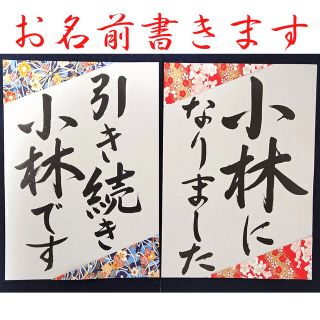 お名前書きます
小林に
なりました
引き続き
小林です